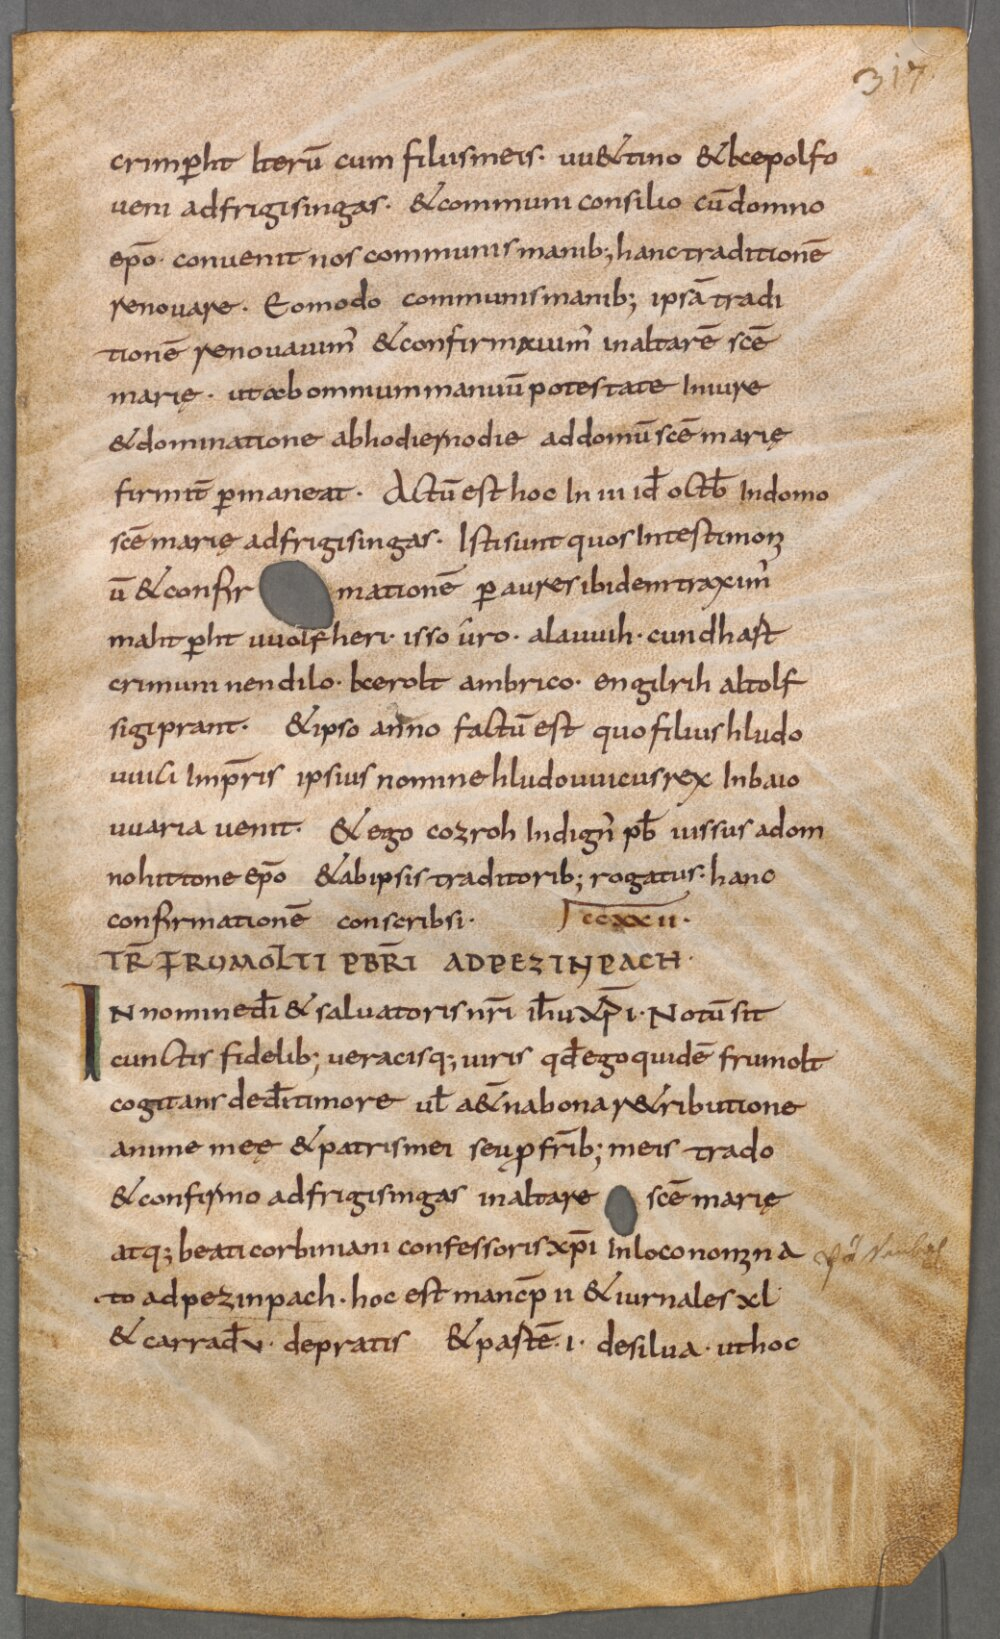 317
crimpht Iterū cum filiis meis· uu&tino &kepolfo
ueni ad frigisingas· &communi consilio cū domno
epō· conuenit nos communis manib; hanc traditionē
renouare· Eo modo communis manib; ipsā tradi
tionē renouauim' &confirmauim' in altarē scē
marię· ut ab omnium manuū potestate In iure
&dominatione ab hodierno die ad domū scē marię
firmit̄ pmaneat· Actū est hoc In iii id octb Indomo
scē marię ad frigisingas· Isti sunt quos In testimoni
ū &confir mationē p aures ibidem traxim'
maht pht uuolfheri· isso ūro· alauuih· cundhast
crimuni nendilo· kerolt ambrico· engilrih altolf
sigiprant· &ipso anno factū est quo filius hludo
uuici Imprīs ipsius nomine hludouuicus rex In baio
uuaria uenit· &ego cozroh Indign' pb iussus a dom
no hittone epō &ab ipsis traditorib; rogatus· hanc
confirmationē conscribsi· ccxxii·
TR̄ FRUMOLTI PBRI AD PEZINPACH·
IN nomine dī & saluatoris nrī ihu xpī· Notū sit
cunctis fidelib; ueracisq; uiris qd ego quidē frumolt
cogitans de dī timore ul a&na bona r&ributione
anime meę &patris mei seu p frīb; meis trado
&confirmo ad frigisingas in altare scē marię
atq; beati corbiniani confessoris xpī In loco nomina
to ad pezinpach· hoc est mancp ii &iurnales xl
&carrad v· de pratis &pastē· i· de silua· ut hoc